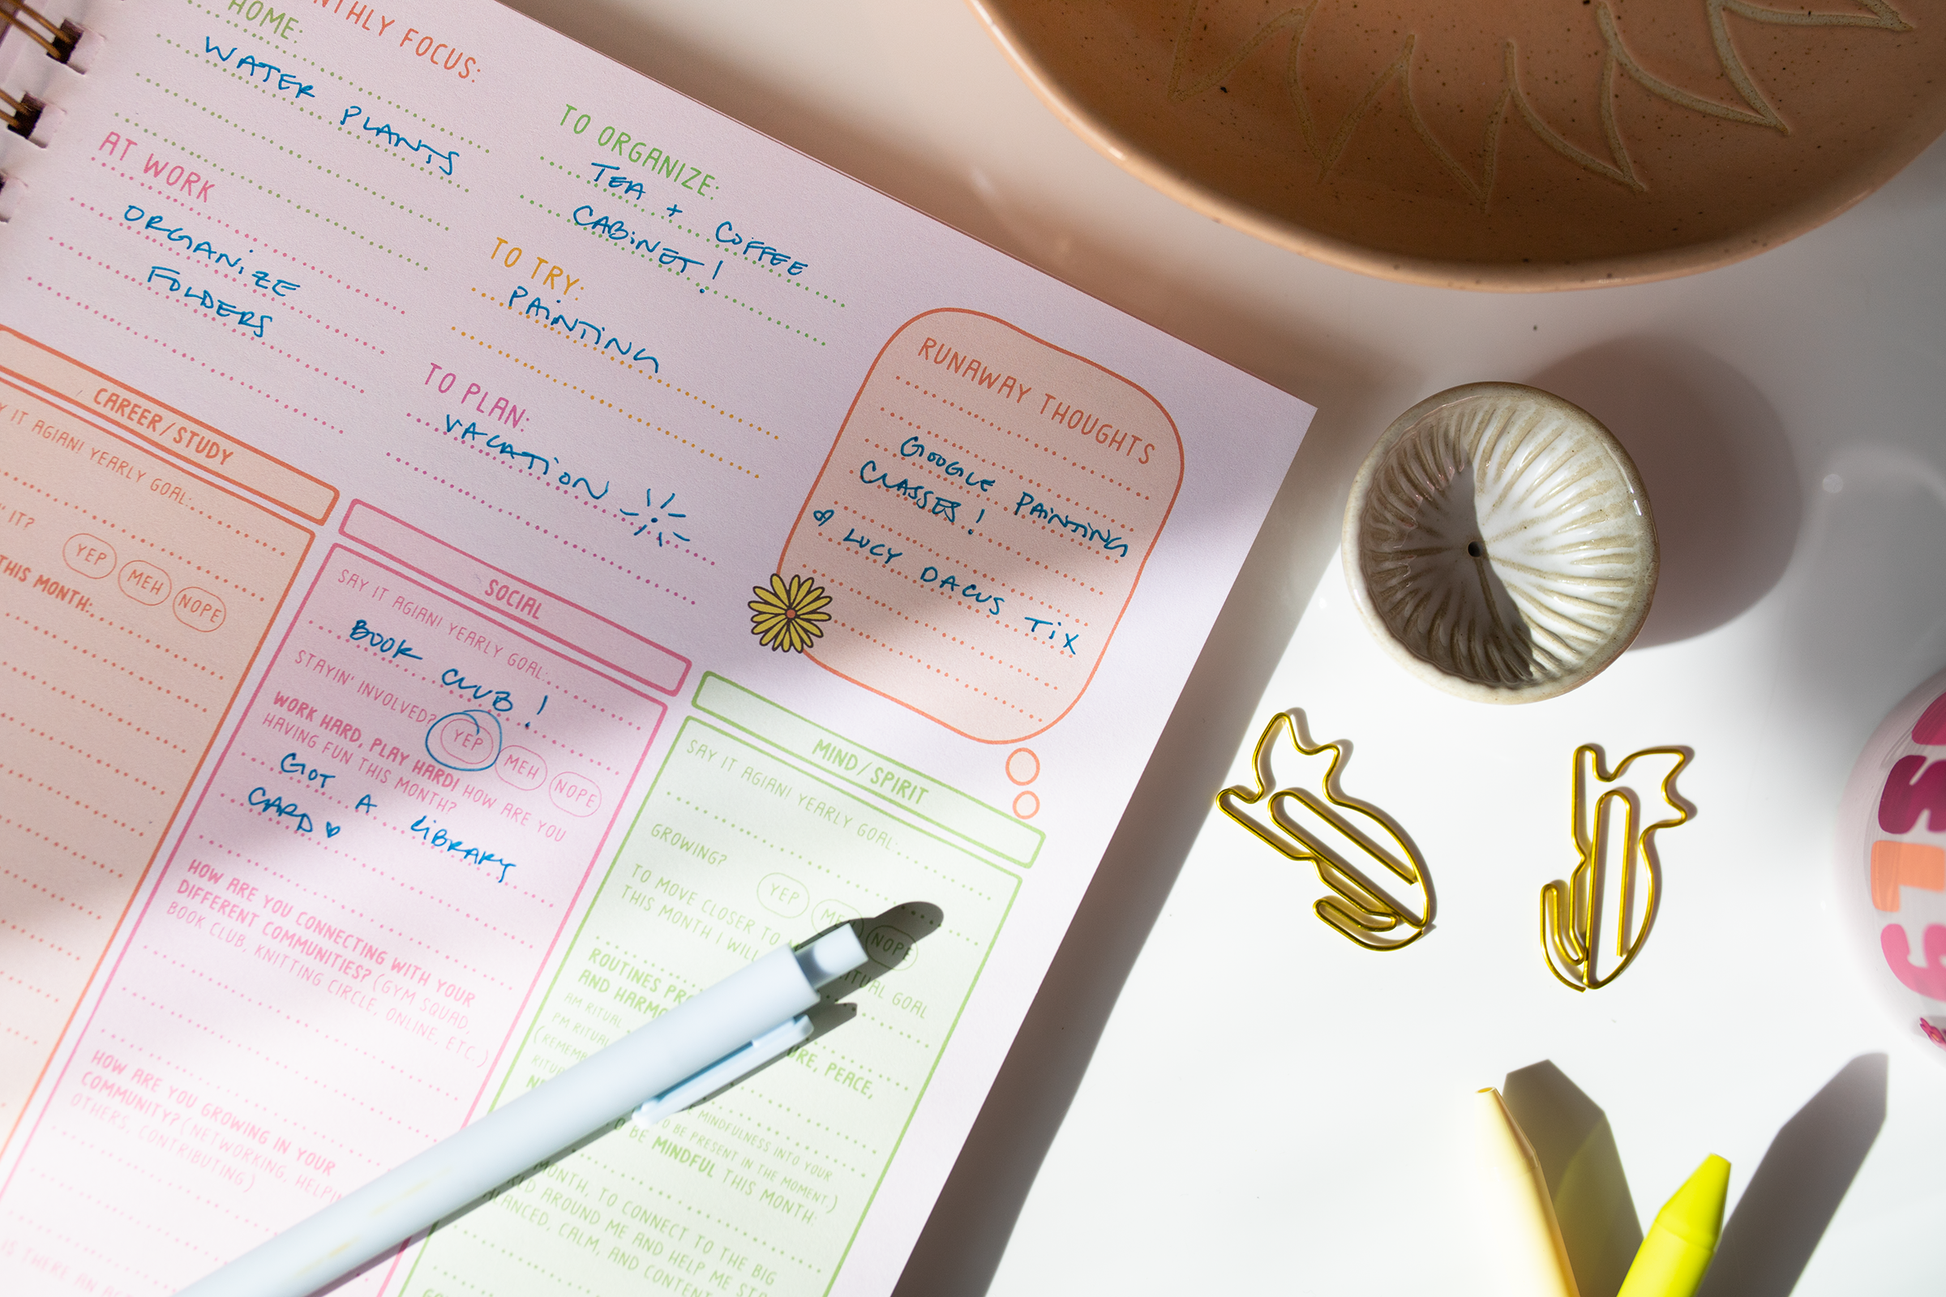 NTHLY FOCUS:
HOME:
WATER PLANTS
AT WORK
ORGANIZE
FOLDERS
TO ORGANIZE:
TEA + COFFEE
CABINET!
TO TRY:
PAINTING
TO PLAN:
VACATION
RUNAWAY THOUGHTS
GOOGLE PAINTING
CLASSES!
LUCY DACUS TIX
CAREER/STUDY
Y IT AGIAN! YEARLY GOAL:
IT?
YEP MEH NOPE
THIS MONTH:
SOCIAL
SAY IT AGIAN! YEARLY GOAL:
BOOK CLUB!
STAYIN' INVOLVED?
YEP MEH NOPE
WORK HARD, PLAY HARD! HOW ARE YOU
HAVING FUN THIS MONTH?
GOT A LIBRARY
CARD
HOW ARE YOU CONNECTING WITH YOUR
DIFFERENT COMMUNITIES? (GYM SQUAD,
BOOK CLUB, KNITTING CIRCLE, ONLINE, ETC.)
HOW ARE YOU GROWING IN YOUR
COMMUNITY? (NETWORKING, HELPIN
OTHERS, CONTRIBUTING)
IS THERE AN
MIND/SPIRIT
SAY IT AGIAN! YEARLY GOAL:
GROWING?
YEP ME NOPE
TO MOVE CLOSER TO
THIS MONTH I WILL
TUAL GOAL
ROUTINES PR
AND HARMO
AM RITUAL
PM RITUAL
(REMEMB
RITU
URE, PEACE,
MINDFULNESS INTO YOUR
TO BE PRESENT IN THE MOMENT.)
O BE MINDFUL THIS MONTH:
MONTH, TO CONNECT TO THE BIG
AROUND ME AND HELP ME STA
LANCED, CALM, AND CONTENT